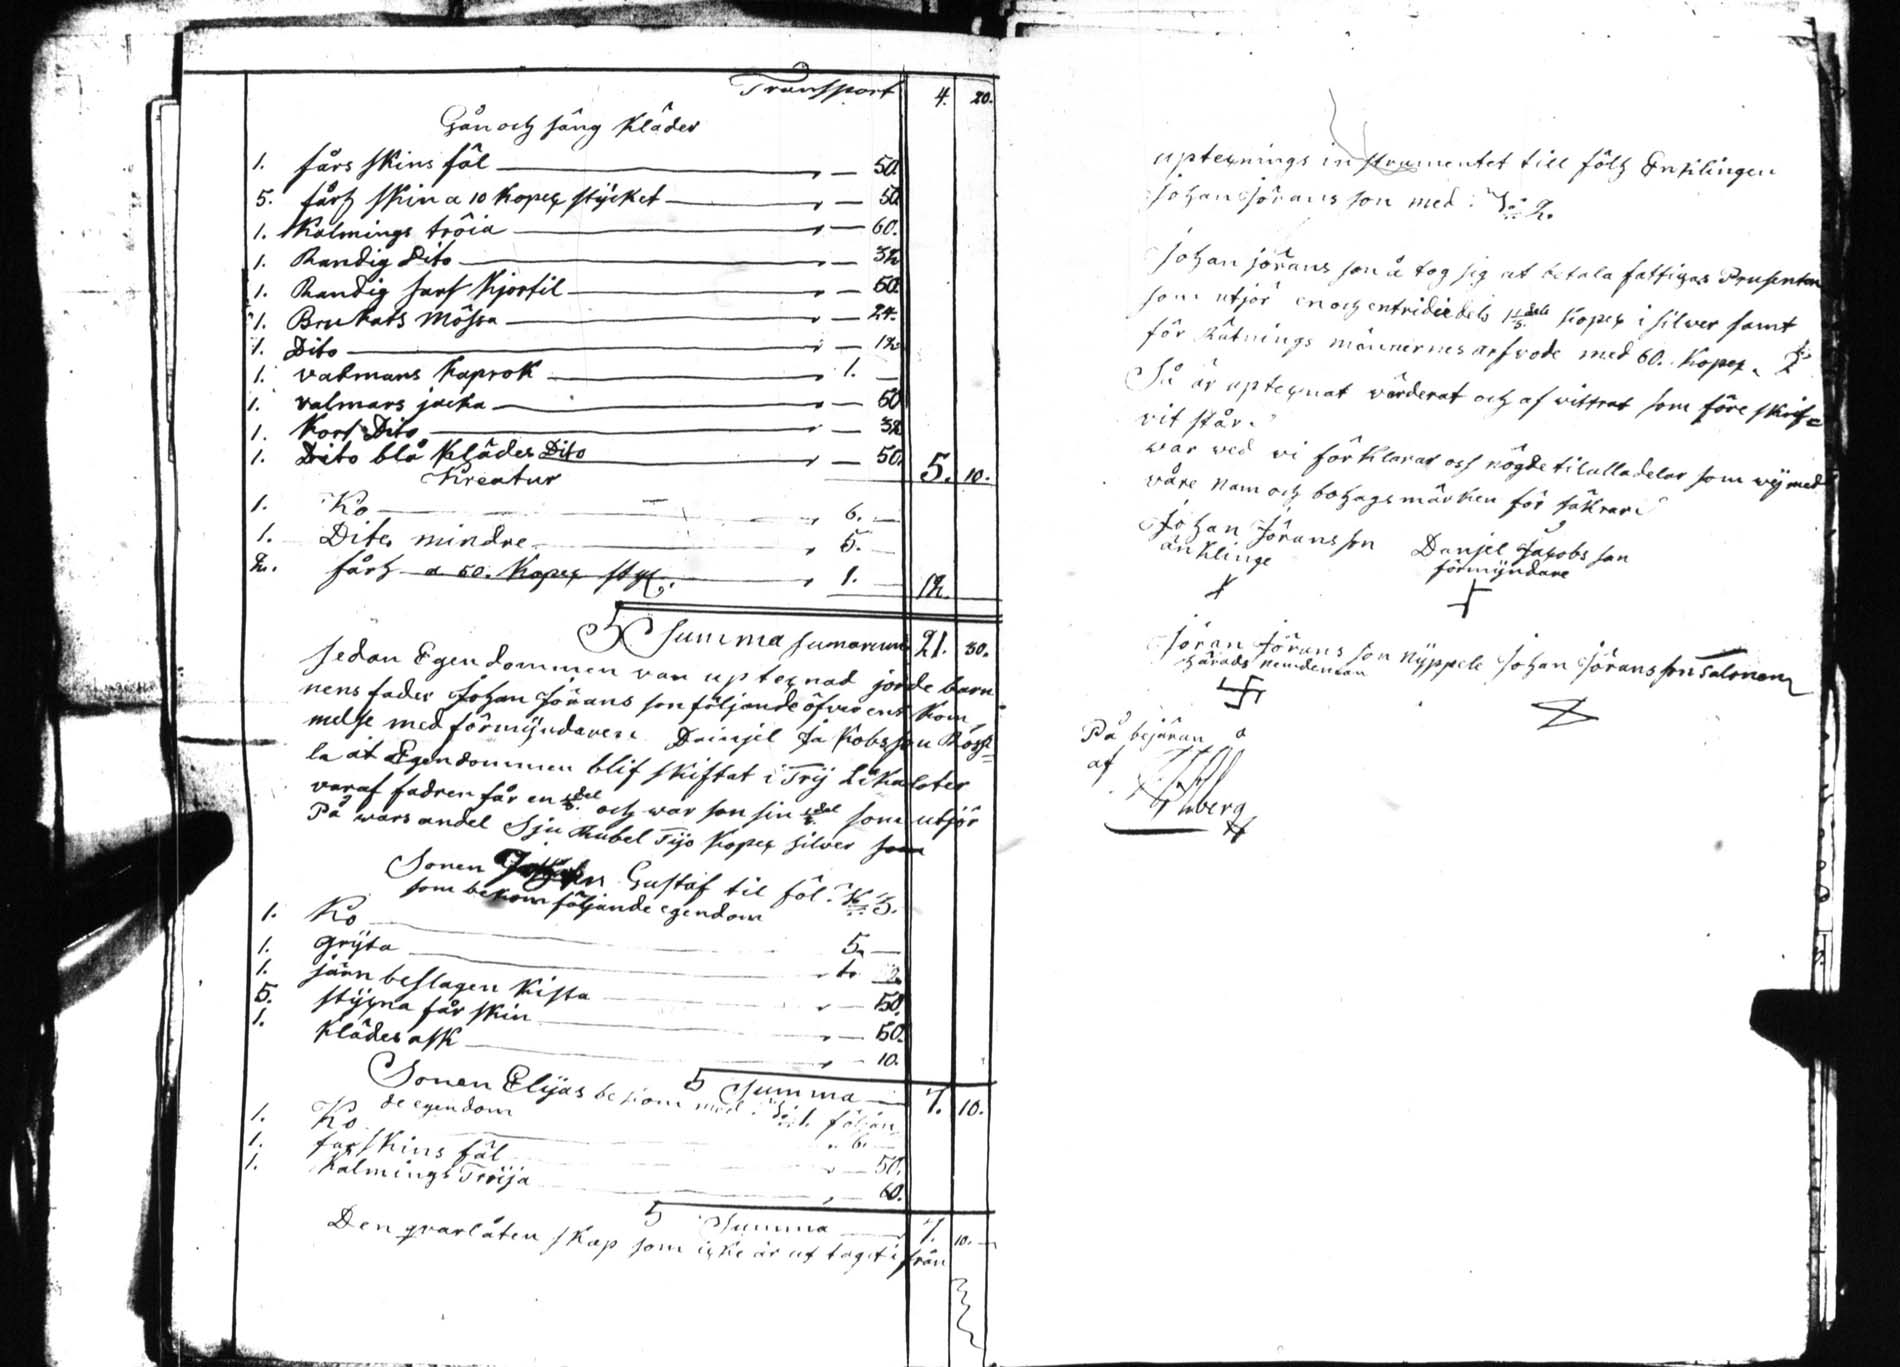 Transport 4. 20.
Gån och säng kläder
1. fårs skins fäl — 50.
5. fårh skin a 10 kopex stycket — 50
1. Kalmings tröia — 60.
1. Randig Dito — 32
1. Randig sars Kjortil — 60.
1. Brukats Mössa — 24.
1. Dito — 12
1. valmans kaprok — 1. —
1. valmars jacka — 60
1. Kort Dito — 32
1. Dito blå Kläder Dito — 50. 5. 10.
Kreatur
1. Ko — 6. —
1. Dito mindre — 5. —
2. fårh a 50. Kopex styx. — 1. — 12.
Summa sumarum 21. 30.
sedan Egendommen var uptexnad jorde barn
nens fader Johan Jörans son följande öfverens kom
melse med förmyndaren Dainjel Jakobsson
la at Egendommen blif skiftat i Trij Lika loter
varaf fadren får en 1/3 del och war son sin 1/3 del som utjör
På wars andel Sju Rubel Tijo kopex silver som
Sonen Gustaf til föl. 
som bekom följande egendom
1. Ko — 5. —
1. gryta
1. järn beslagen Kista — 50.
5. styxna får skin — 50.
1. Kläder ask — 10.
Summa — 7. 10.
Sonen Elijas bekom med följan
de egendom
1. Ko — 6. —
1. farskins fäl — 50.
1. Kalmings Tröija — 60.
Summa — 7. 10. —
Den qvarlåten skap som icke är ut taget ifrån
uptexnings instrumentet till fölh Enklingen
Johan Jörans son med
Johan jörans son å tog sig at betala fattigas Prusenten
som utjör en och entridiedels 1 1/3 dels kopex i silver samt
för Rätnings männernes arfvode med 60. kopex.
Så är uptexnat värderat och af wittrat som före skrif=
vit står.
war wed vi förklarar oss nögde til alla delar som wij med
våre Nam och bohags märken för säkrar.
Johan Jöransson
änklinge
Danjel Jacobs son
förmyndare
Jöran Jörans son Nyppele
härads nemdeman
Johan Jörans son Talonen
På bejäran
af